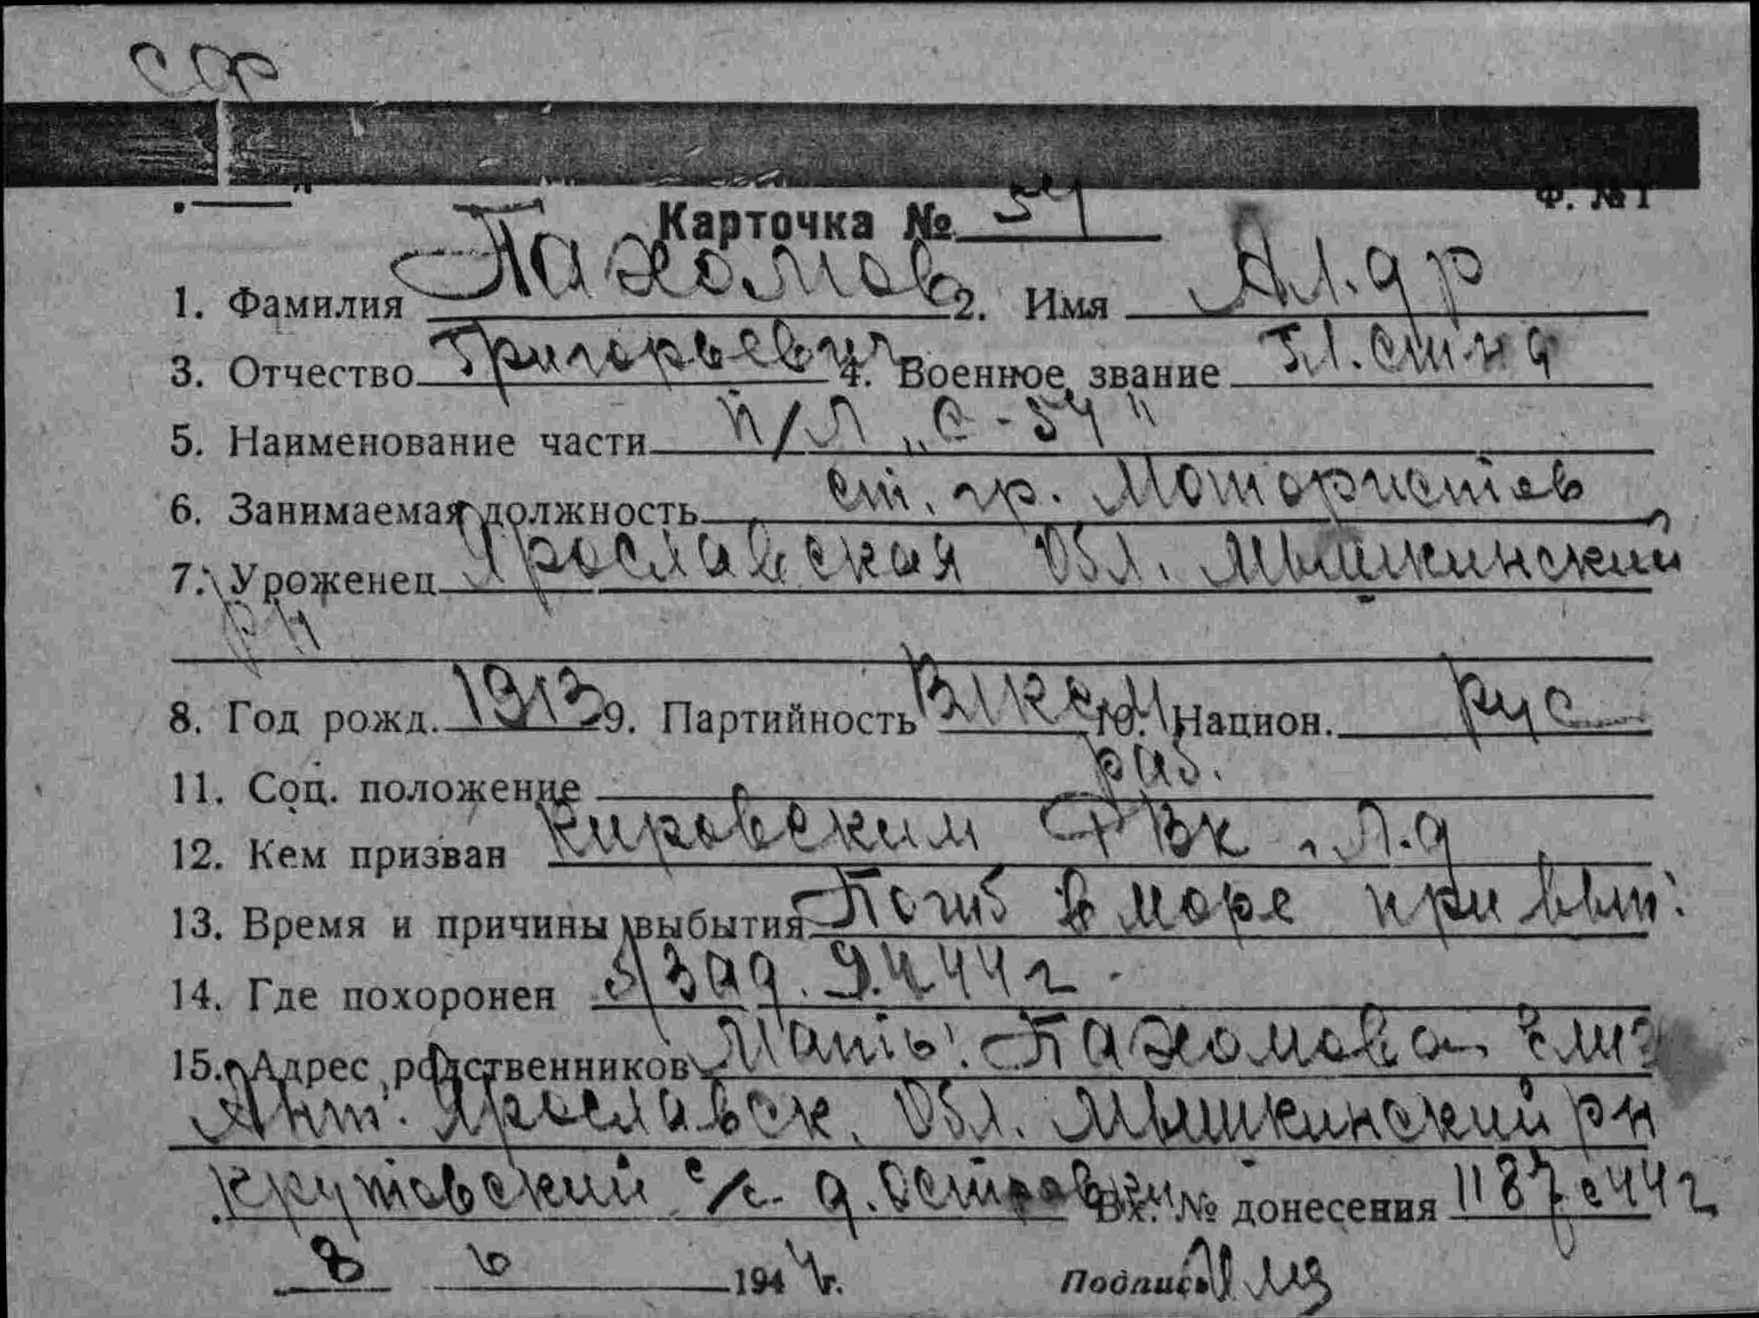 Ф. № 1
Карточка № 54
1. Фамилия Пахомов 2. Имя Ал.др
3. Отчество Григорьевич 4. Военное звание Гл. ст-на
5. Наименование части п/л „С-54"
6. Занимаемая должность ст. гр. Мотористов
7. Уроженец Ярославская обл. Мышкинский
р-н
8. Год рожд. 1913 9. Партийность ВЛКСМ 10. Национ. рус
11. Соц. положение раб.
12. Кем призван Кировским РВК, Л.д
13. Время и причины выбытия Погиб в море при вып.
14. Где похоронен б/зад. 9.4.44 г.
15. Адрес родственников Мать: Пахомова Елиз
Ант. Ярославск. обл. Мышкинский р-н
Крутовский с/с д. Вх. № донесения 1187с 44 г
8 6 1944 г. Подпись